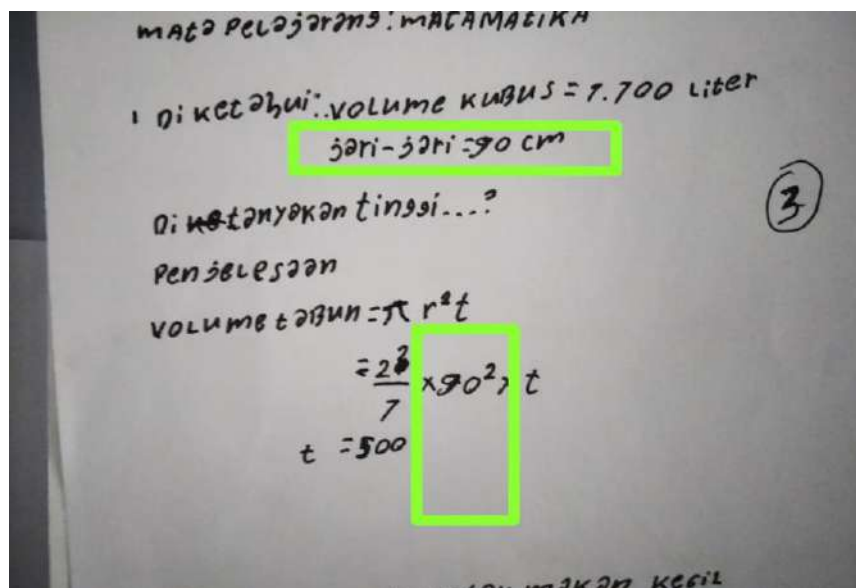 mata pelajarang: MATAMATIKA
1 Diketahui: volume kubus = 7.700 Liter
jari-jari = 90 cm
3
Di ketanyakan tinggi....?
Penjelesaan
volume tabun = π r²t
= 22/7 × 90² × t
t = 500
makan kecil